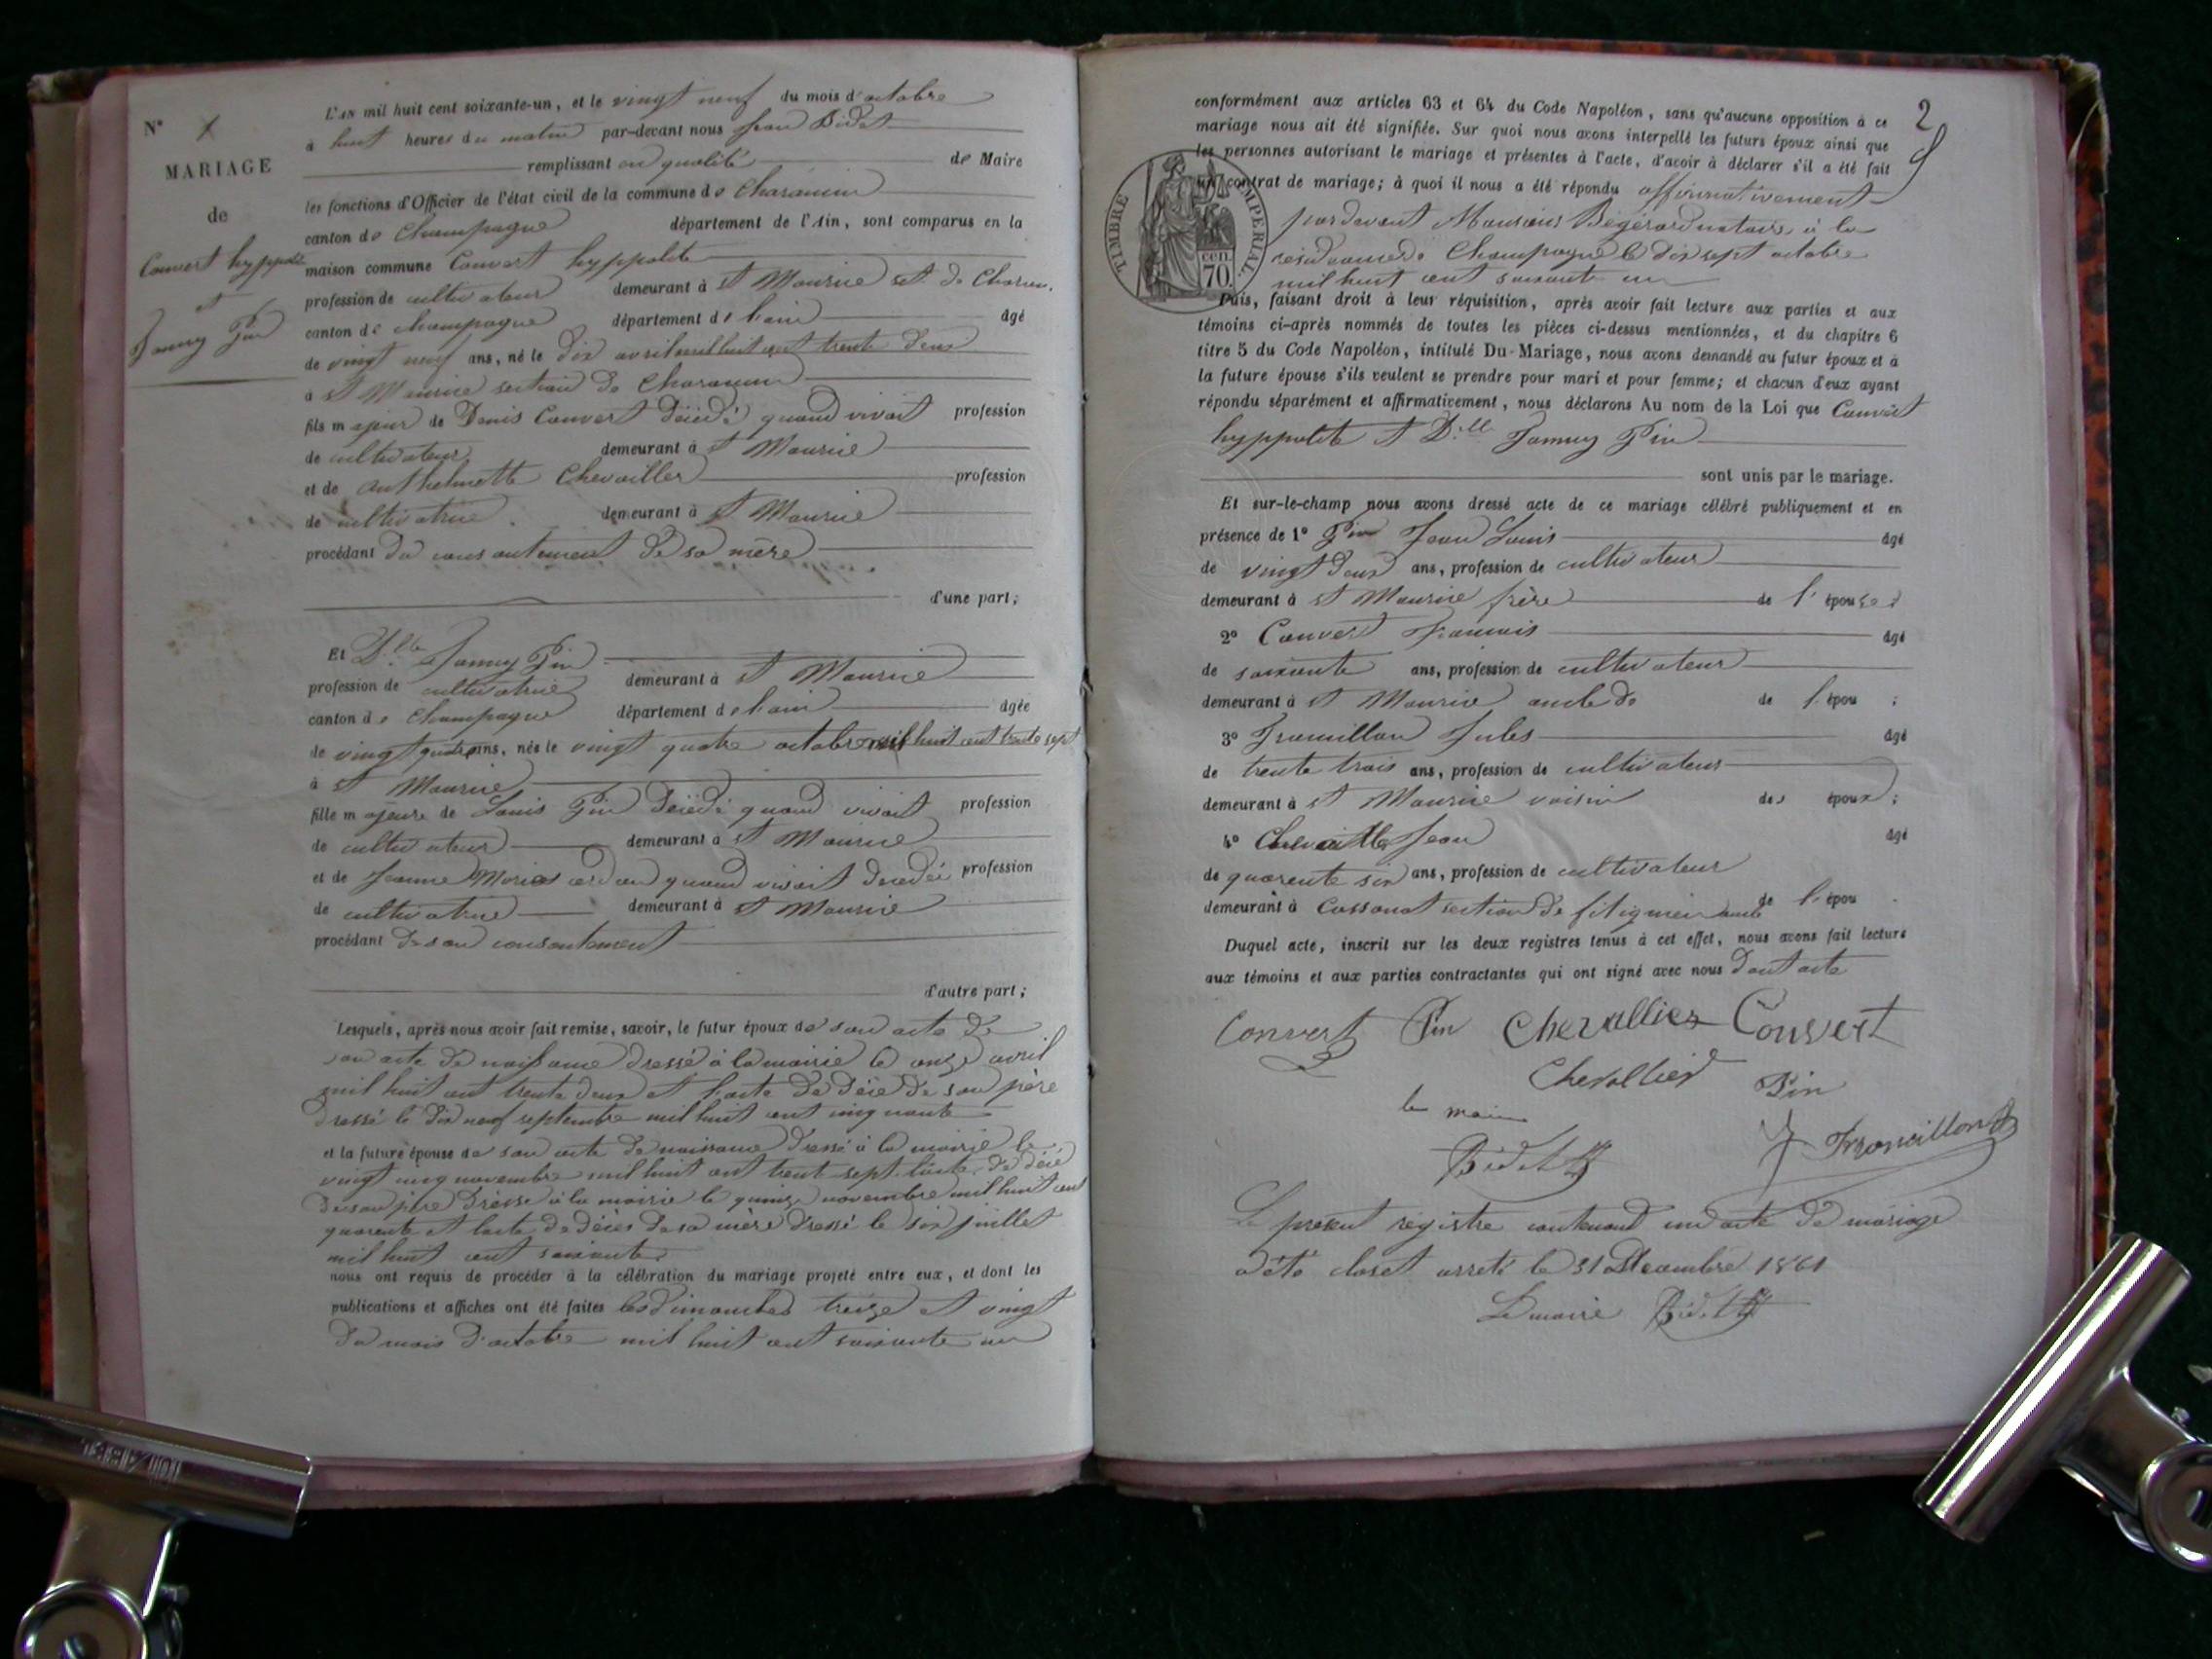 N° 1
MARIAGE
de
Convert hyppolite
et
Fanny Pin
L'AN mil huit cent soixante-un, et le vingt neuf du mois d'octobre
à huit heures du matin par-devant nous Jean Bidet
remplissant en qualité de Maire
les fonctions d'Officier de l'état civil de la commune de Charancin
canton de Champagne département de l'Ain, sont comparus en la
maison commune Convert hyppolite
profession de cultivateur demeurant à St Maurice sct. de Charan.
canton de champagne département de l'ain âgé
de vingt neuf ans, né le dix avril mil huit cent trente deux
à St Maurice section de Charancin
fils majeur de Denis Convert décédé quand vivait profession
de cultivateur demeurant à St Maurice
et de Anthelmette Chevailler profession
de cultivatrice demeurant à St Maurice
procédant du consentement de sa mère
d'une part;
Et Dlle Fanny Pin
profession de cultivatrice demeurant à St Maurice
canton de champagne département de l'ain âgée
de vingt quatre ans, née le vingt quatre octobre mil huit cent trente sept
à St Maurice
fille majeure de Louis Pin décédé quand vivait profession
de cultivateur demeurant à St Maurice
et de Jeanne Marie quand vivait décédée profession
de cultivatrice demeurant à St Maurice
procédant de son consentement
d'autre part;
Lesquels, après nous avoir fait remise, savoir, le futur époux de son acte de
son acte de naissance dressé à la mairie le onze avril
mil huit cent trente deux et l'acte de décè de son père
dressé le dix neuf septembre mil huit cent cinquante
et la future épouse de son acte de naissance dressé à la mairie le
vingt cinq novembre mil huit cent trent sept l'acte de décè
de son père dressé à la mairie le quinze novembre mil huit cent
quarente et l'acte de décès de sa mère dressé le six juillet
mil huit cent soixante
nous ont requis de procéder à la célébration du mariage projeté entre eux, et dont les
publications et affiches ont été faites les dimanches treize et vingt
du mois d'octobre mil huit cent soixante un
2
conformément aux articles 63 et 64 du Code Napoléon, sans qu'aucune opposition à ce
mariage nous ait été signifiée. Sur quoi nous avons interpellé les futurs époux ainsi que
les personnes autorisant le mariage et présentes à l'acte, d'avoir à déclarer s'il a été fait
un contrat de mariage; à quoi il nous a été répondu affirmativement
TIMBRE IMPÉRIAL.
cen.
70.
pardevant Monsieur Bégérard notaire à la
résidence de Champagne le dix sept octobre
mil huit cent soixante un
Puis, faisant droit à leur réquisition, après avoir fait lecture aux parties et aux
témoins ci-après nommés de toutes les pièces ci-dessus mentionnées, et du chapitre 6
titre 5 du Code Napoléon, intitulé Du Mariage, nous avons demandé au futur époux et à
la future épouse s'ils veulent se prendre pour mari et pour femme; et chacun d'eux ayant
répondu séparément et affirmativement, nous déclarons Au nom de la Loi que Convert
hyppolite et Dlle Fanny Pin
sont unis par le mariage.
Et sur-le-champ nous avons dressé acte de ce mariage célébré publiquement et en
présence de 1° Pin Jean Louis âgé
de vingt deux ans, profession de cultivateur
demeurant à St Maurice frère de l'épouse
2° Convert Francois âgé
de soixante ans, profession de cultivateur
demeurant à St Maurice oncle de de l'épou ;
3° Francillon Jules âgé
de trente trois ans, profession de cultivateur
demeurant à St Maurice voisin des époux;
4° Chevailler Jean âgé
de quarente six ans, profession de cultivateur
demeurant à Cossonat section de fitignieu oncle de l'épou
Duquel acte, inscrit sur les deux registres tenus à cet effet, nous avons fait lecture
aux témoins et aux parties contractantes qui ont signé avec nous dont acte
Convert Pin Chevallier Convert
Chevallier Pin
le maire
Bidet J Francillon
Le present registre contenant un acte de mariage
a été clos et arreté le 31 Decembre 1861
Le maire Bidet